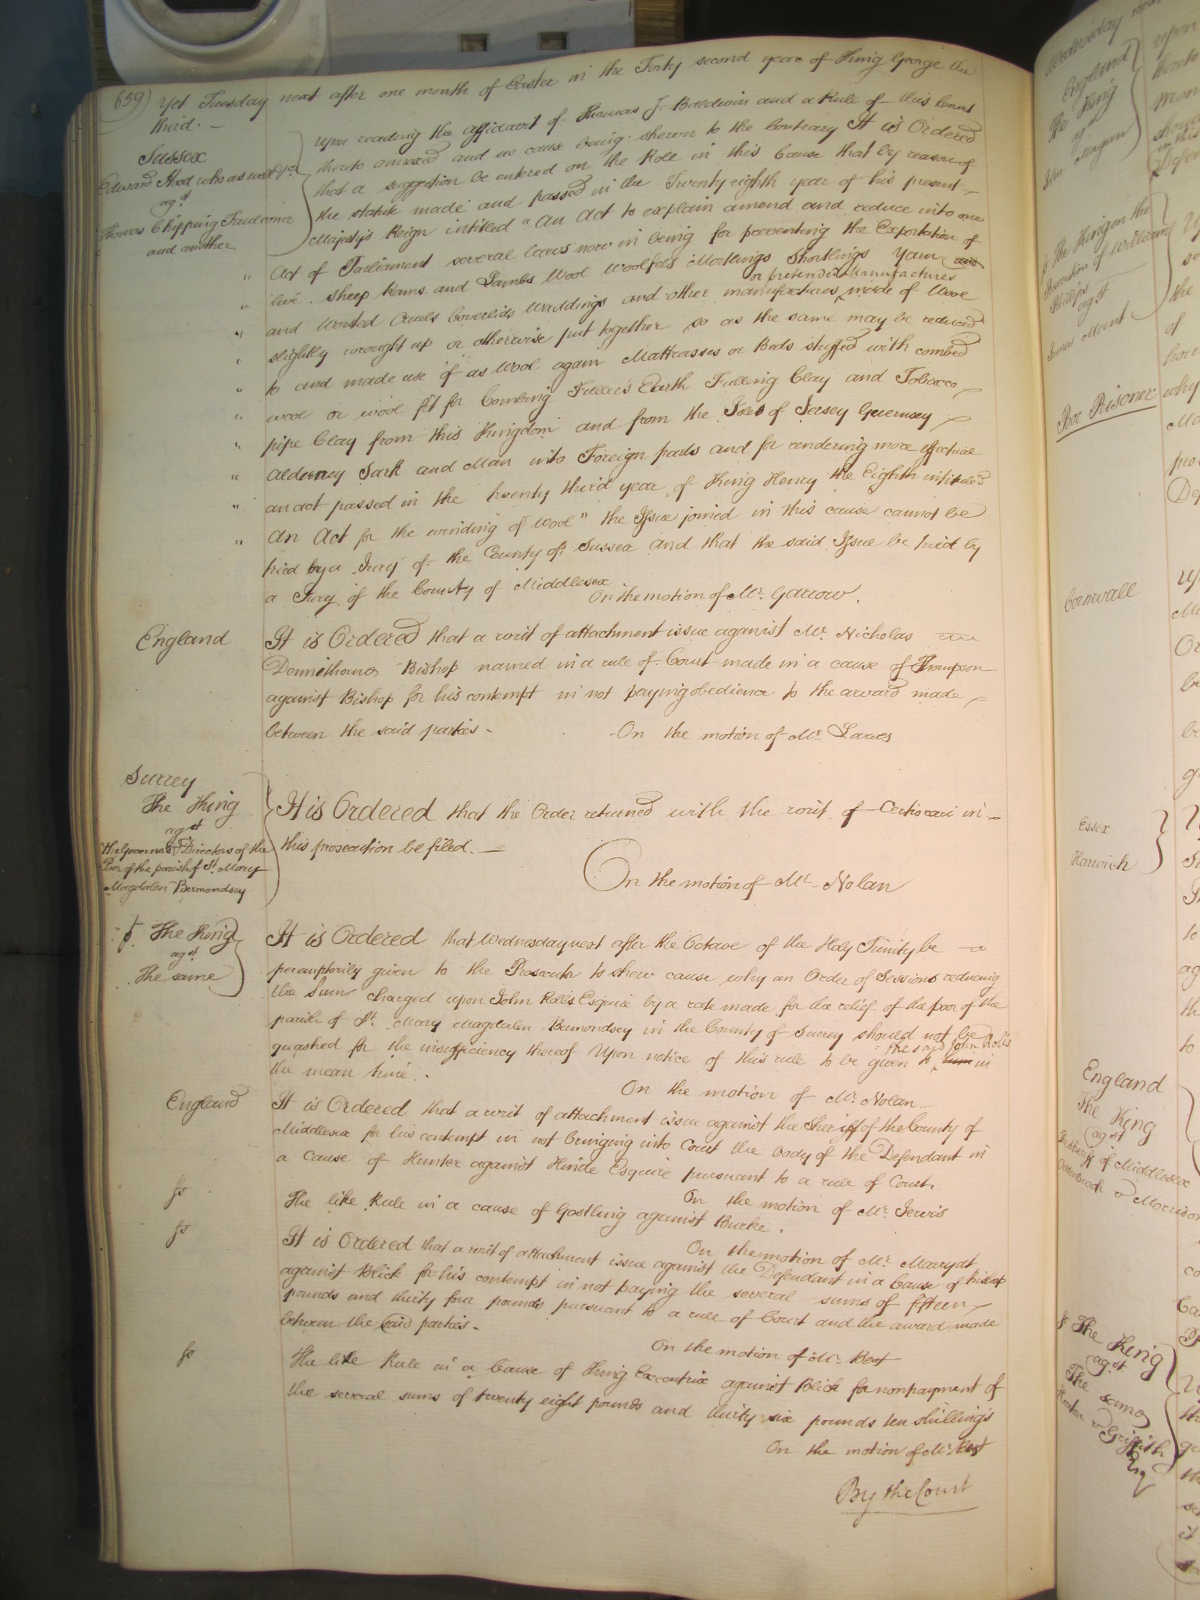 659) Yet Tuesday next after one month of Easter in the Forty second year of King George the
third. —
Sussex
Edward Hood who as well &c.
agst
Thomas Chipping Faulconer
and another
Upon reading the affidavit of Thomas J. Baldwin and a Rule of this Court
hereto annexed and no cause being shewn to the contrary It is Ordered
that a suggestion be entered on the Roll in this Cause that by reason of
the statute made and passed in the Twenty eighth year of his present
Majesty's Reign intitled "An Act to explain amend and reduce into one
" Act of Parliament several laws now in being for preventing the Exportation of
" live Sheep Rams and Lambs Wool Woolfels Mortlings Shortlings Yarn and
or pretended Manufactures
" and Worsted Cruels Coverlids Waddings and other manufactures made of Wool
" slightly wrought up or otherwise put together so as the same may be reduced
" to and made use of as Wool again Mattrasses or Beds stuffed with combed
" wool or wool fit for Combing Fullers Earth Fulling Clay and Tobacco
" pipe Clay from this Kingdom and from the Isles of Jersey Guernsey
" Alderney Sark and Man into Foreign parts and for rendering more effectual
" an act passed in the twenty third year of King Henry the Eighth intituled
" An Act for the winding of Wool" the Issue joined in this cause cannot be
tried by a Jury of the County of Sussex and that the said Issue be tried by
a Jury of the County of Middlesex
On the motion of Mr. Garrow.
England
It is Ordered that a writ of attachment issue against Mr. Nicholas
Donnithorne Bishop named in a rule of Court made in a cause of Thompson
against Bishop for his contempt in not paying obedience to the award made
between the said parties.
On the motion of Mr. Lawes
Surrey
The King
agst
the Governors & Directors of the
Poor of the parish of St. Mary
Magdalen Bermondsey
It is Ordered that the Order returned with the writ of Certiorari in
this prosecution be filed. —
On the motion of Mr. Nolan
The King
agst
The same
It is Ordered that Wednesday next after the Octave of the Holy Trinity be
peremptorily given to the Prosecutor to shew cause why an Order of Sessions reducing
the Sum charged upon John Rolls Esquire by a rate made for the relief of the poor of the
parish of St. Mary Magdalen Bermondsey in the County of Surrey should not be
the said John Rolls
quashed for the insufficiency thereof Upon notice of this rule to be given to him in
the mean time.
On the motion of Mr. Nolan
England
It is Ordered that a writ of attachment issue against the Sheriff of the County of
Middlesex for his contempt in not bringing into Court the body of the Defendant in
a Cause of Hunter against Hinde Esquire pursuant to a rule of Court.
On the motion of Mr. Jervis
The like Rule in a cause of Gostling against Burke.
On the motion of Mr. Marryat
It is Ordered that a writ of attachment issue against the Defendant in a Cause of Bishop
against Blick for his contempt in not paying the several sums of fifteen
pounds and thirty four pounds pursuant to a rule of Court and the award made
between the said parties.
On the motion of Mr. Best
The like Rule in a Cause of King Executrix against Blick for nonpayment of
the several sums of twenty eight pounds and thirty six pounds ten shillings
On the motion of Mr. Best
By the Court
Wednesday
England
The King
agst
John Morgan
The King on the
Prosecution of William
Phillips
agst
James Mount
Poor Prisoner
Cornwall
Essex
Harwich
England
The King
agst
of Middlesex
& Morrison
The King
agst
The same